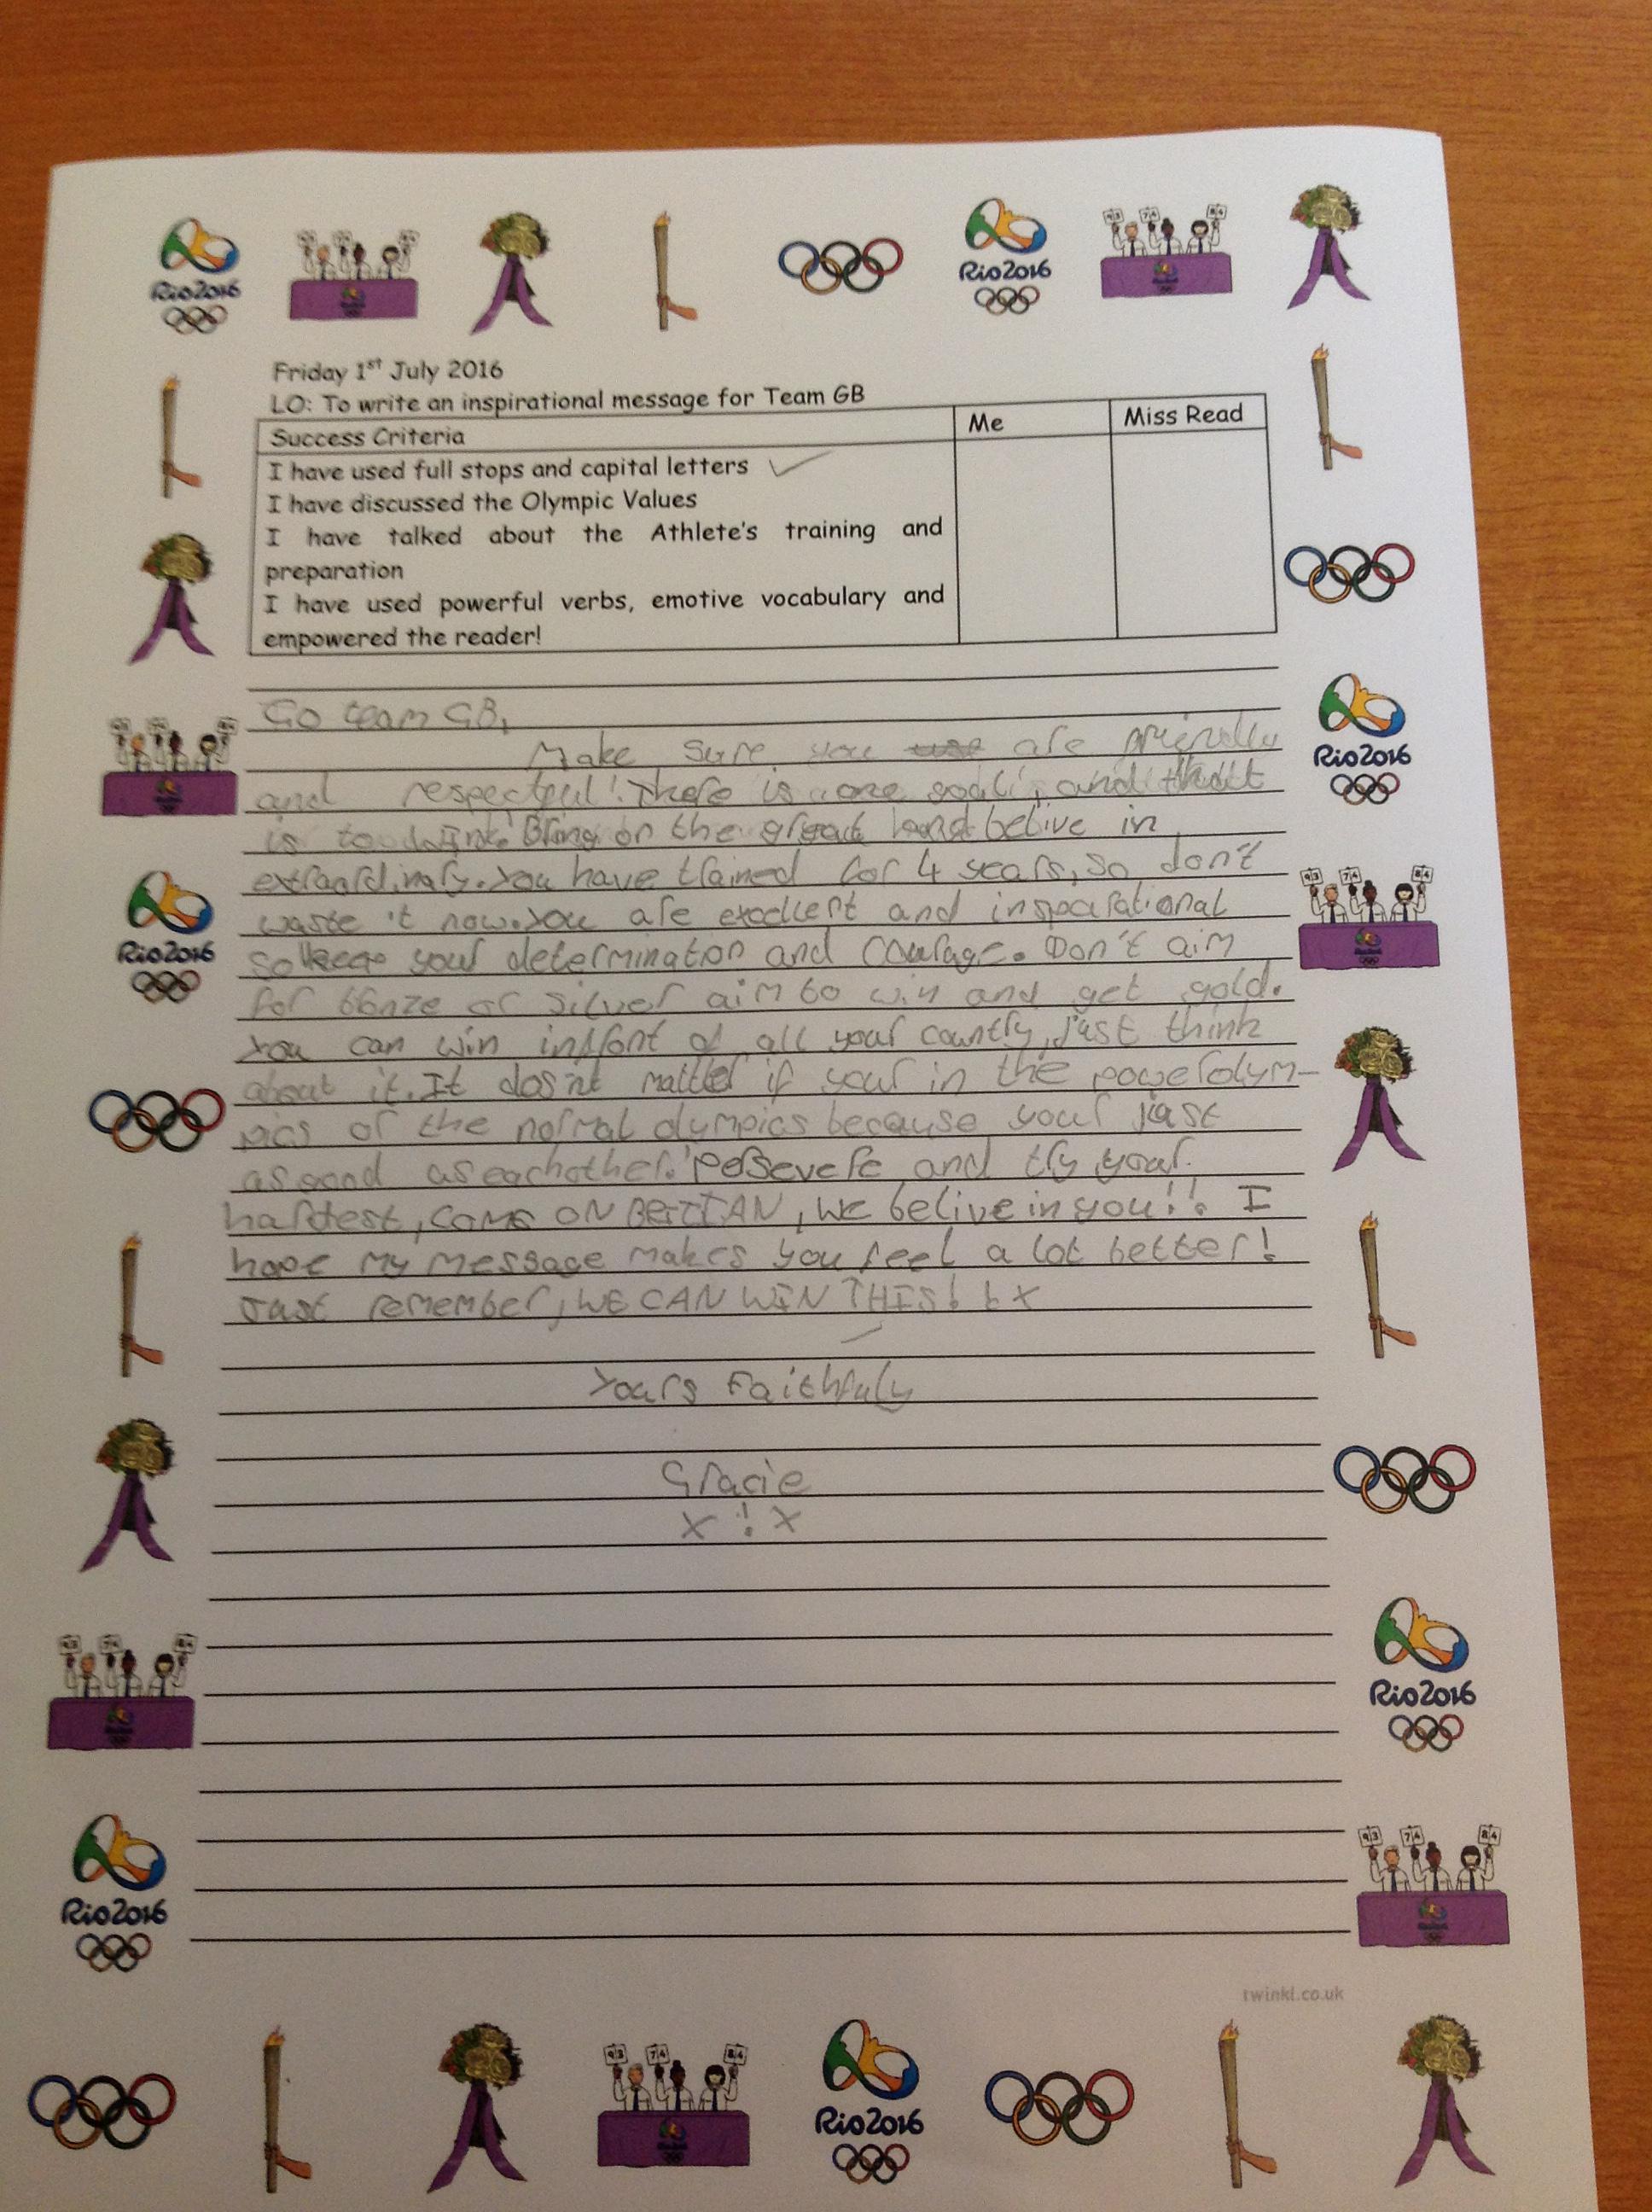 Rio2016
Rio2016
Friday 1st July 2016
LO: To write an inspirational message for Team GB
Success Criteria
Me
Miss Read
I have used full stops and capital letters
I have discussed the Olympic Values
I have talked about the Athlete's training and
preparation
I have used powerful verbs, emotive vocabulary and
empowered the reader!
Go team GB,
Make sure you are friendly
and respectful! There is one goal, and that
is to win! Bring on the great and belive in
extraordinary. You have trained for 4 years, so don't
waste it now. You are excellent and inspirational
so keep your determination and courage. Don't aim
for bronze or silver aim to win and get gold.
You can win infront of all your country, just think
about it. It dosn't matter if your in the powerolym-
pics or the normal olympics because your just
as good as eachother! Persevere and try your
hardest, COME ON BRITIAN, we belive in you!! I
hope my message makes you feel a lot better!
Just remember, WE CAN WIN THIS!! x
Yours Faithfuly
Gracie
x ! x
Rio2016
Rio2016
Rio2016
Rio2016
twinkl.co.uk
Rio2016